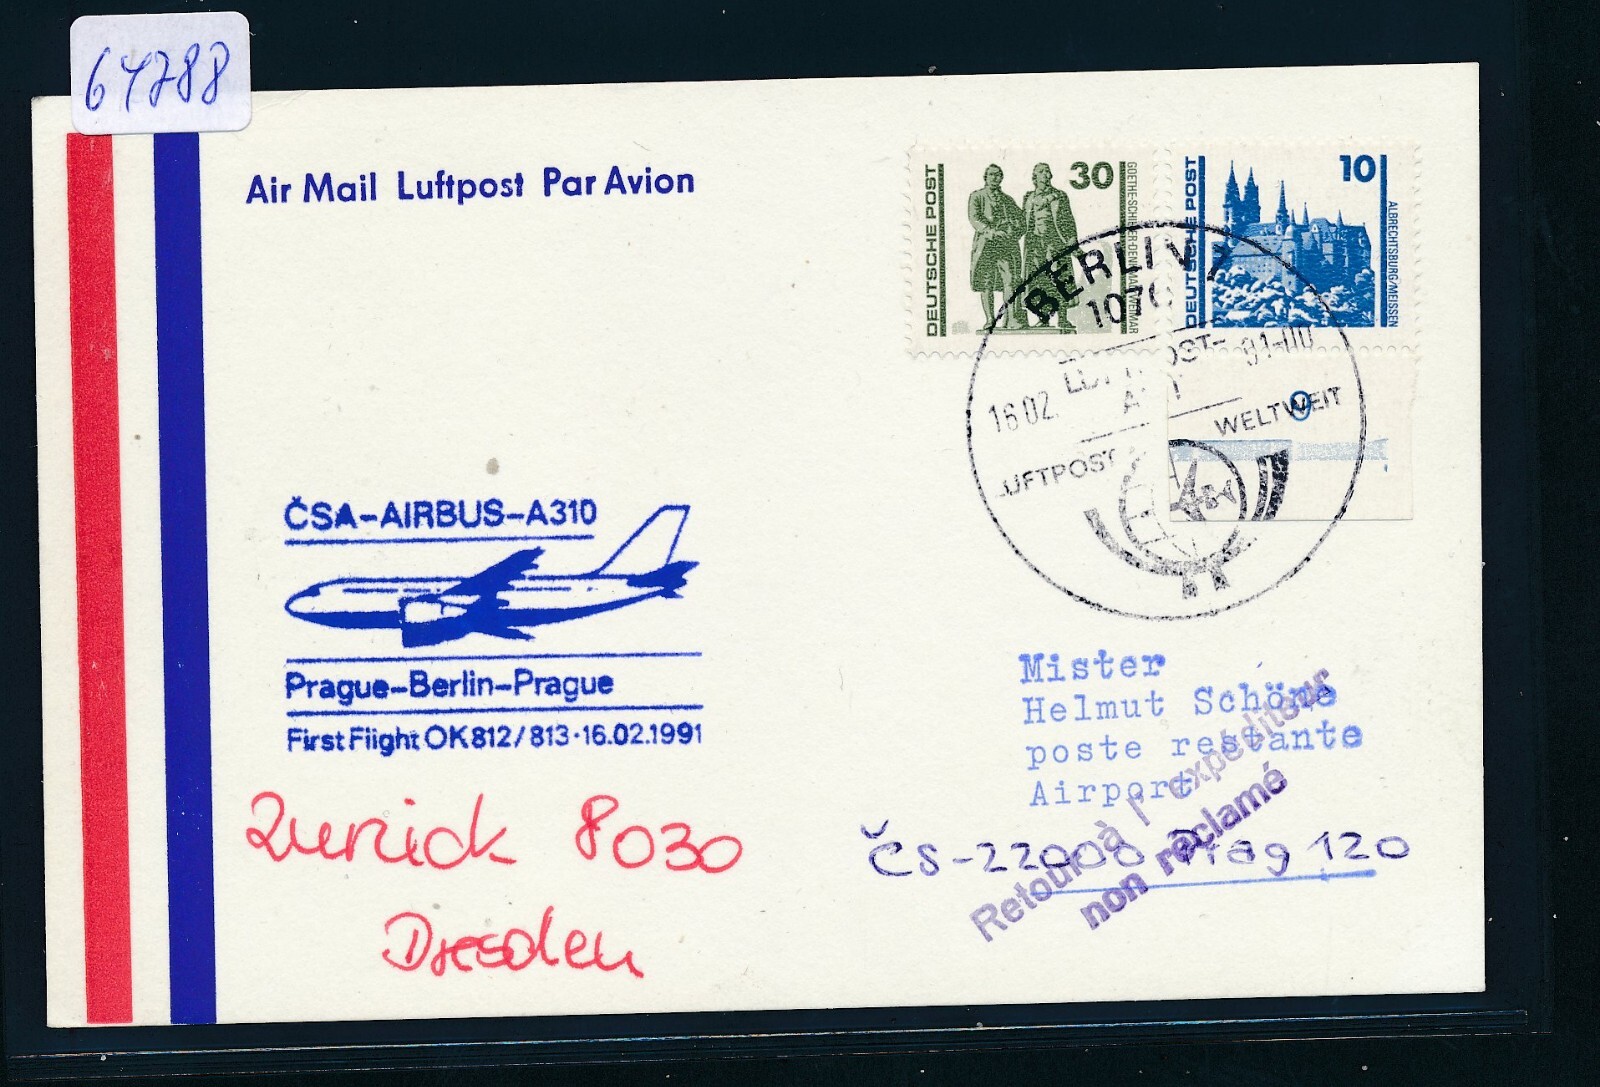 64788
Air Mail Luftpost Par Avion
30
DEUTSCHE POST
GOETHE-SCHILLER-DENKMAL/WEIMAR
10
DEUTSCHE POST
ALBRECHTSBURG/MEISSEN
BERLIN 7
1076
16.02. 91-00
WELTWEIT
LUFTPOST
9
ČSA-AIRBUS-A310
Prague-Berlin-Prague
First Flight OK812/813·16.02.1991
Mister
Helmut Schöne
poste restante
Airport
ČS-22000 Prag 120
Retour à l'expediteur
non réclamé
Zurück 8030
Dresden